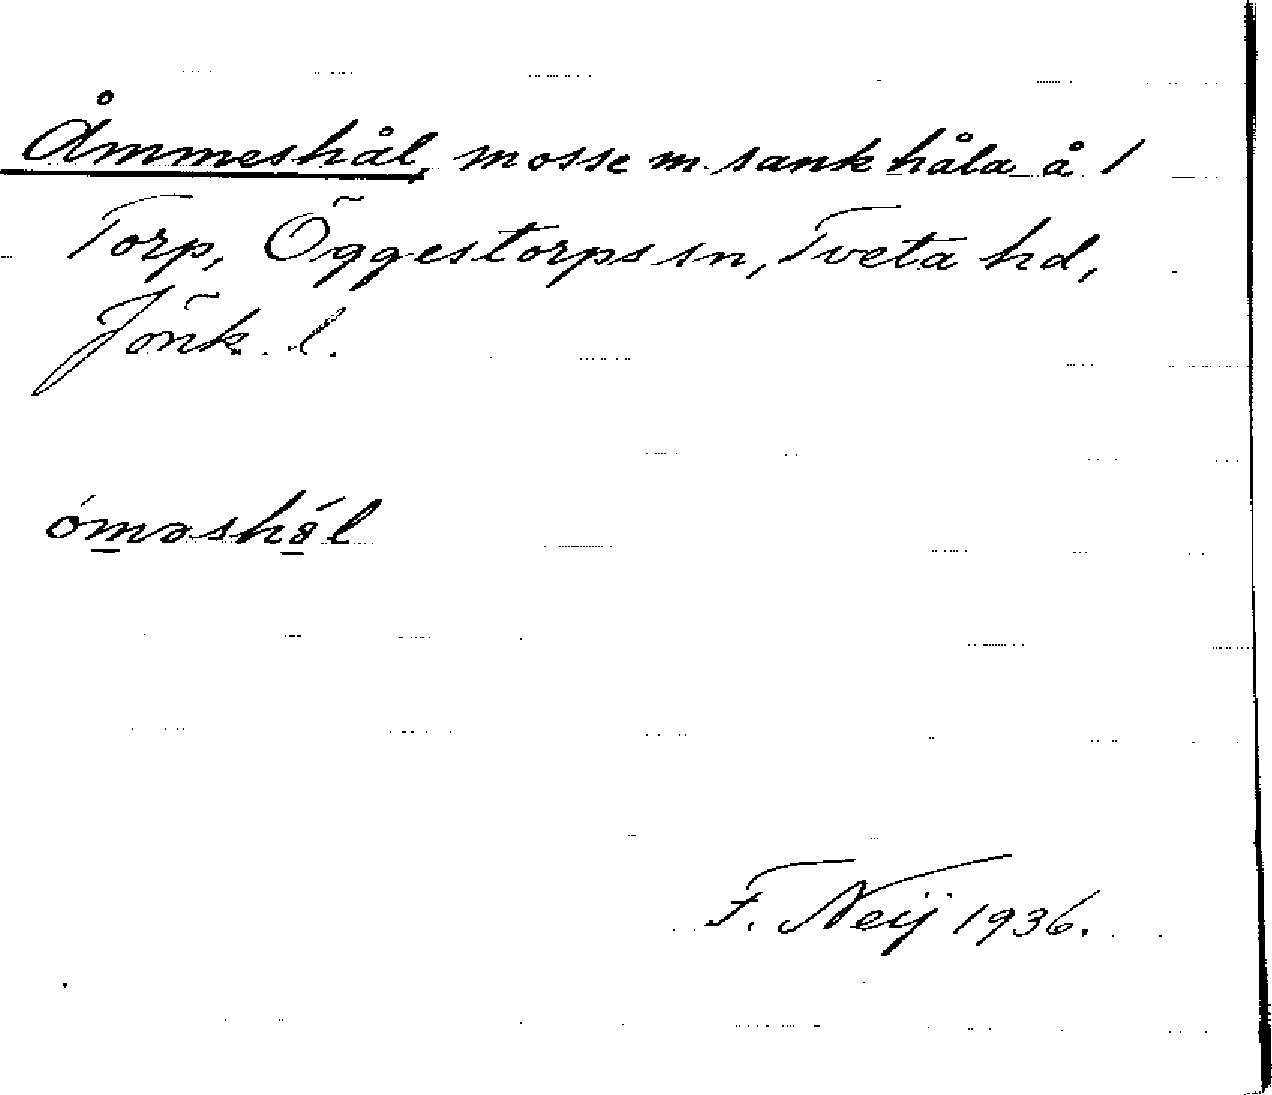 Åmmeshål, mosse m. sank håla å 1
Torp, Öggestorps sn, Tveta hd,
Jönk. l.
óməshǻl
F. Neij 1936.